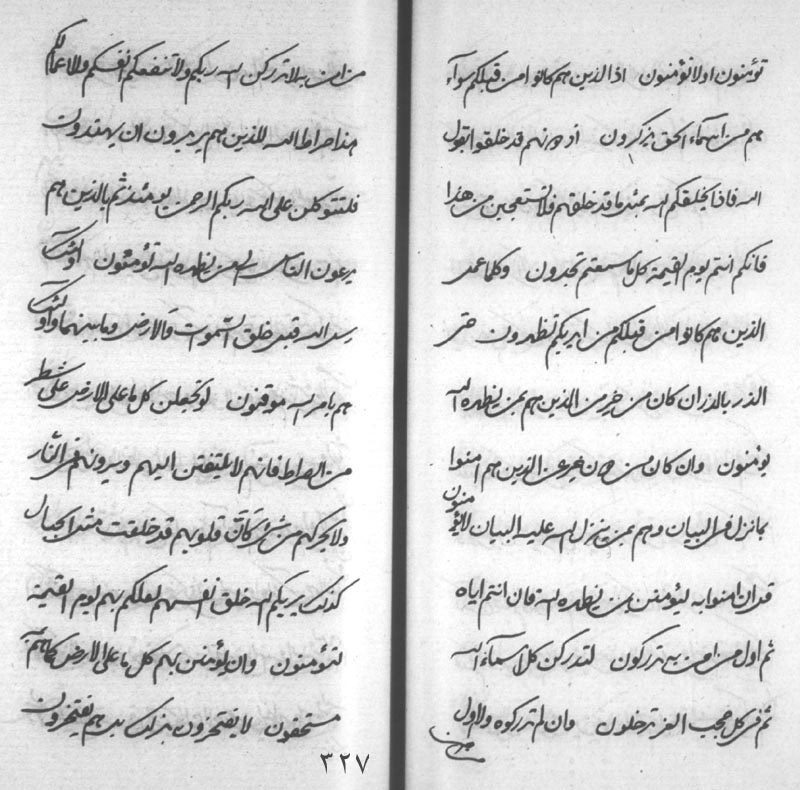 تؤمنون اولا تؤمنون اذا الذين هم كانوا من قبلكم سوآء
هم من اسماء الحق يذكرون قد خلقوا بقول
الله فاذا يخلقكم الله بمثل ما قد خلقهم فلا تستعجبن من هذا
فانكم انتم يوم القيمة كل ما سمعتم تجدون وكلما عمل
الذين هم كانوا من قبلكم من ايديكم تظهرون حتى
الذر بالذر ان كان من خير من الذين هم بمن يظهره الله
يؤمنون وان كان من دون خير عن الذين هم امنوا
بما نزل في البيان وهم بمن ينزل الله عليه البيان لا يؤمنون
قل ان امنوا به لتؤمنن بمن يظهره الله فان انتم اياه
ثم اول من امن به تدركون لتدركن كل اسمآء الله
ثم في كل حجب العز تدخلون وان لم تدركوه ولا اول
من امن به لا تدركن الله ربكم ولا تنفعكم انفسكم ولا اعمالكم
هذا صراط الله للذين هم يريدون ان يهتدون
فلتتوكلن على الله ربكم الرحمن يومئذ ثم بالذين هم
يدعون الناس الى من يظهره الله تؤمنون اولئك
رسل الله قبل خلق السموات والارض وما بينهما واولئك
هم بامر الله موقنون لو تجعلن كل ما على الارض على شط
من الصراط فانهم لا يلتفتن اليهم ويرونهم في النار
ولا يحركهم من شئ كأن قلوبهم قد خلقت مثل الجبال
كذلك يريكم الله خلق انفسهم لعلكم بهم يوم القيمة
لتؤمنون وان يؤمنن بهم كل ما على الارض
مستحقون لا يفتخرون بذلك بل هم يفتخرون
٣٢٧